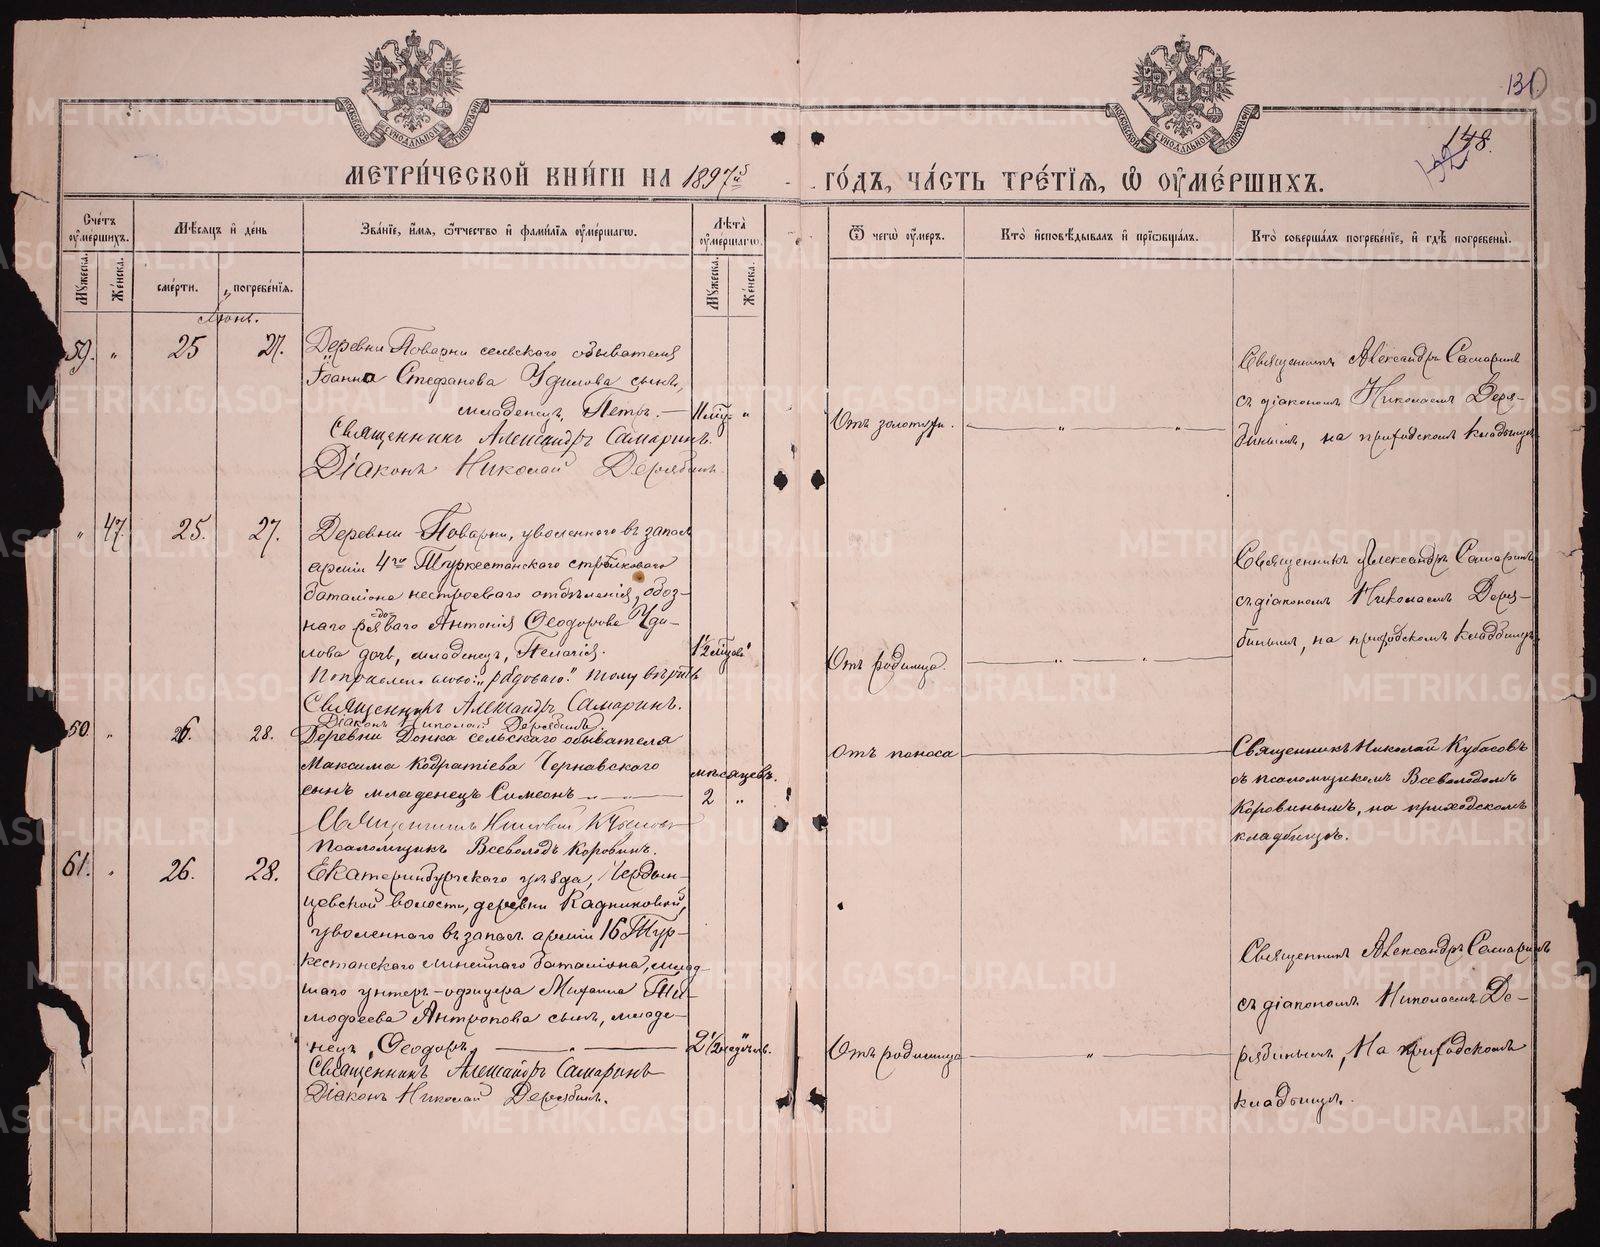 130
148.
142
МОСКОВСКОЙ СѴНОДАЛЬНОЙ ТИПОГРАФІИ
МОСКОВСКОЙ СѴНОДАЛЬНОЙ ТИПОГРАФІИ
МЕТРИ́ЧЕСКОЙ КНИ́ГИ НА 1897й ГО́ДЪ, ЧА́СТЬ ТРЕ́ТІѦ, Ѡ ОУМЕ́РШИХЪ.
Счéтъ оумéршихъ.
Мѣсяцъ и день
Звáніе, и́мя, ѻ́тчество и фамилія оумéршагѡ.
Лѣта̀ оумéршагѡ.
Ѿ чегѡ̀ оумеръ.
Кто̀ исповѣдывалъ и пріѡбщалъ.
Кто̀ совершáлъ погребéніе, и гдѣ погребены̀.
Мужеска.
Женска.
смéрти.
погребéнія.
Мужеска.
Женска.
Іюнь.
59. " 25 27. Деревни Поварни сельскаго обывателя
Іоанна Стефанова Удилова сынъ,
младенецъ, Петръ.
Священникъ Александръ Самаринъ.
Діаконъ Николай Дерябинъ.
Отъ золотухи.
Священникъ Александръ Самаринъ
съ діакономъ Николаемъ Деря-
бинымъ, на приходскомъ кладбищѣ.
" 47. 25. 27. Деревни Поварни, уволеннаго въ запасъ
арміи 4го Туркестанскаго стрѣлковаго
баталіона нестроеваго отдѣленія, обоз-
наго рядоваго Антонія Ѳеодорова Уди-
лова дочь, младенецъ, Пелагія.
слово: „рядоваго." тому вѣрить
Священникъ Александръ Самаринъ.
Діаконъ Николай Дерябинъ.
1/2 мѣсяца
Отъ родимца.
Священникъ Александръ Самаринъ
съ діакономъ Николаемъ Деря-
бинымъ, на приходскомъ кладбищѣ.
60. " 26. 28. Деревни Донка сельскаго обывателя
Максима Кодратіева Чернавскаго
сынъ младенецъ Симеонъ
Священникъ Николай Кубасовъ
Псаломщикъ Всеволодъ Коровинъ.
мѣсяцевъ.
2 "
отъ поноса
Священникъ Николай Кубасовъ
съ псаломщикомъ Всеволодомъ
Коровинымъ, на приходскомъ
кладбищѣ.
61. " 26. 28. Екатеринбургскаго уѣзда, Чердын-
цевской волости, деревни Кадниковой,
уволеннаго въ запасъ арміи 16 Тур-
кестанскаго линейнаго баталіона, млад-
шаго унтеръ-офицера Михаила Ти-
моѳеева Антропова сынъ, младе-
нецъ, Ѳеодоръ,
Священникъ Александръ Самаринъ
Діаконъ Николай Дерябинъ.
2 1/2 недѣль.
Отъ родимца
Священникъ Александръ Самаринъ
съ діакономъ Николаемъ Де-
рябинымъ, На приходскомъ
кладбищѣ.
METRIKI.GASO-URAL.RU